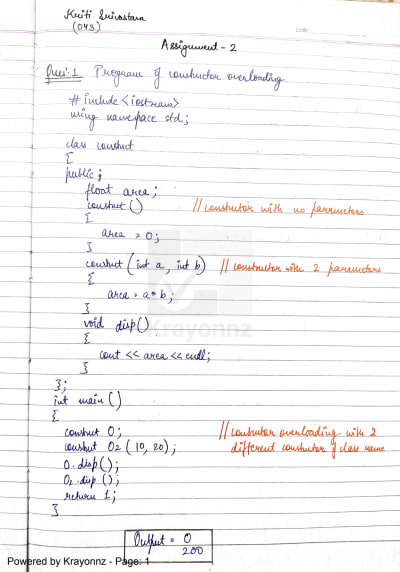 Kriti Srivastava
(043)
Date:
Assignment - 2
Ques:1 Program of constructor overloading
# include <iostream>
using namespace std;
class construct
{
public:
float area;
construct () // constructor with no parameters
{
area = 0;
}
construct (int a, int b) // constructor with 2 parameters
{
area = a * b;
}
void disp()
{
cout << area << endl;
}
};
int main ()
{
construct O; // constructor overloading with 2
construct O2 (10, 20); different constructor of class name
O.disp();
O2.disp ();
return 1;
}
Output = 0
200
Krayonnz
Powered by Krayonnz - Page: 1